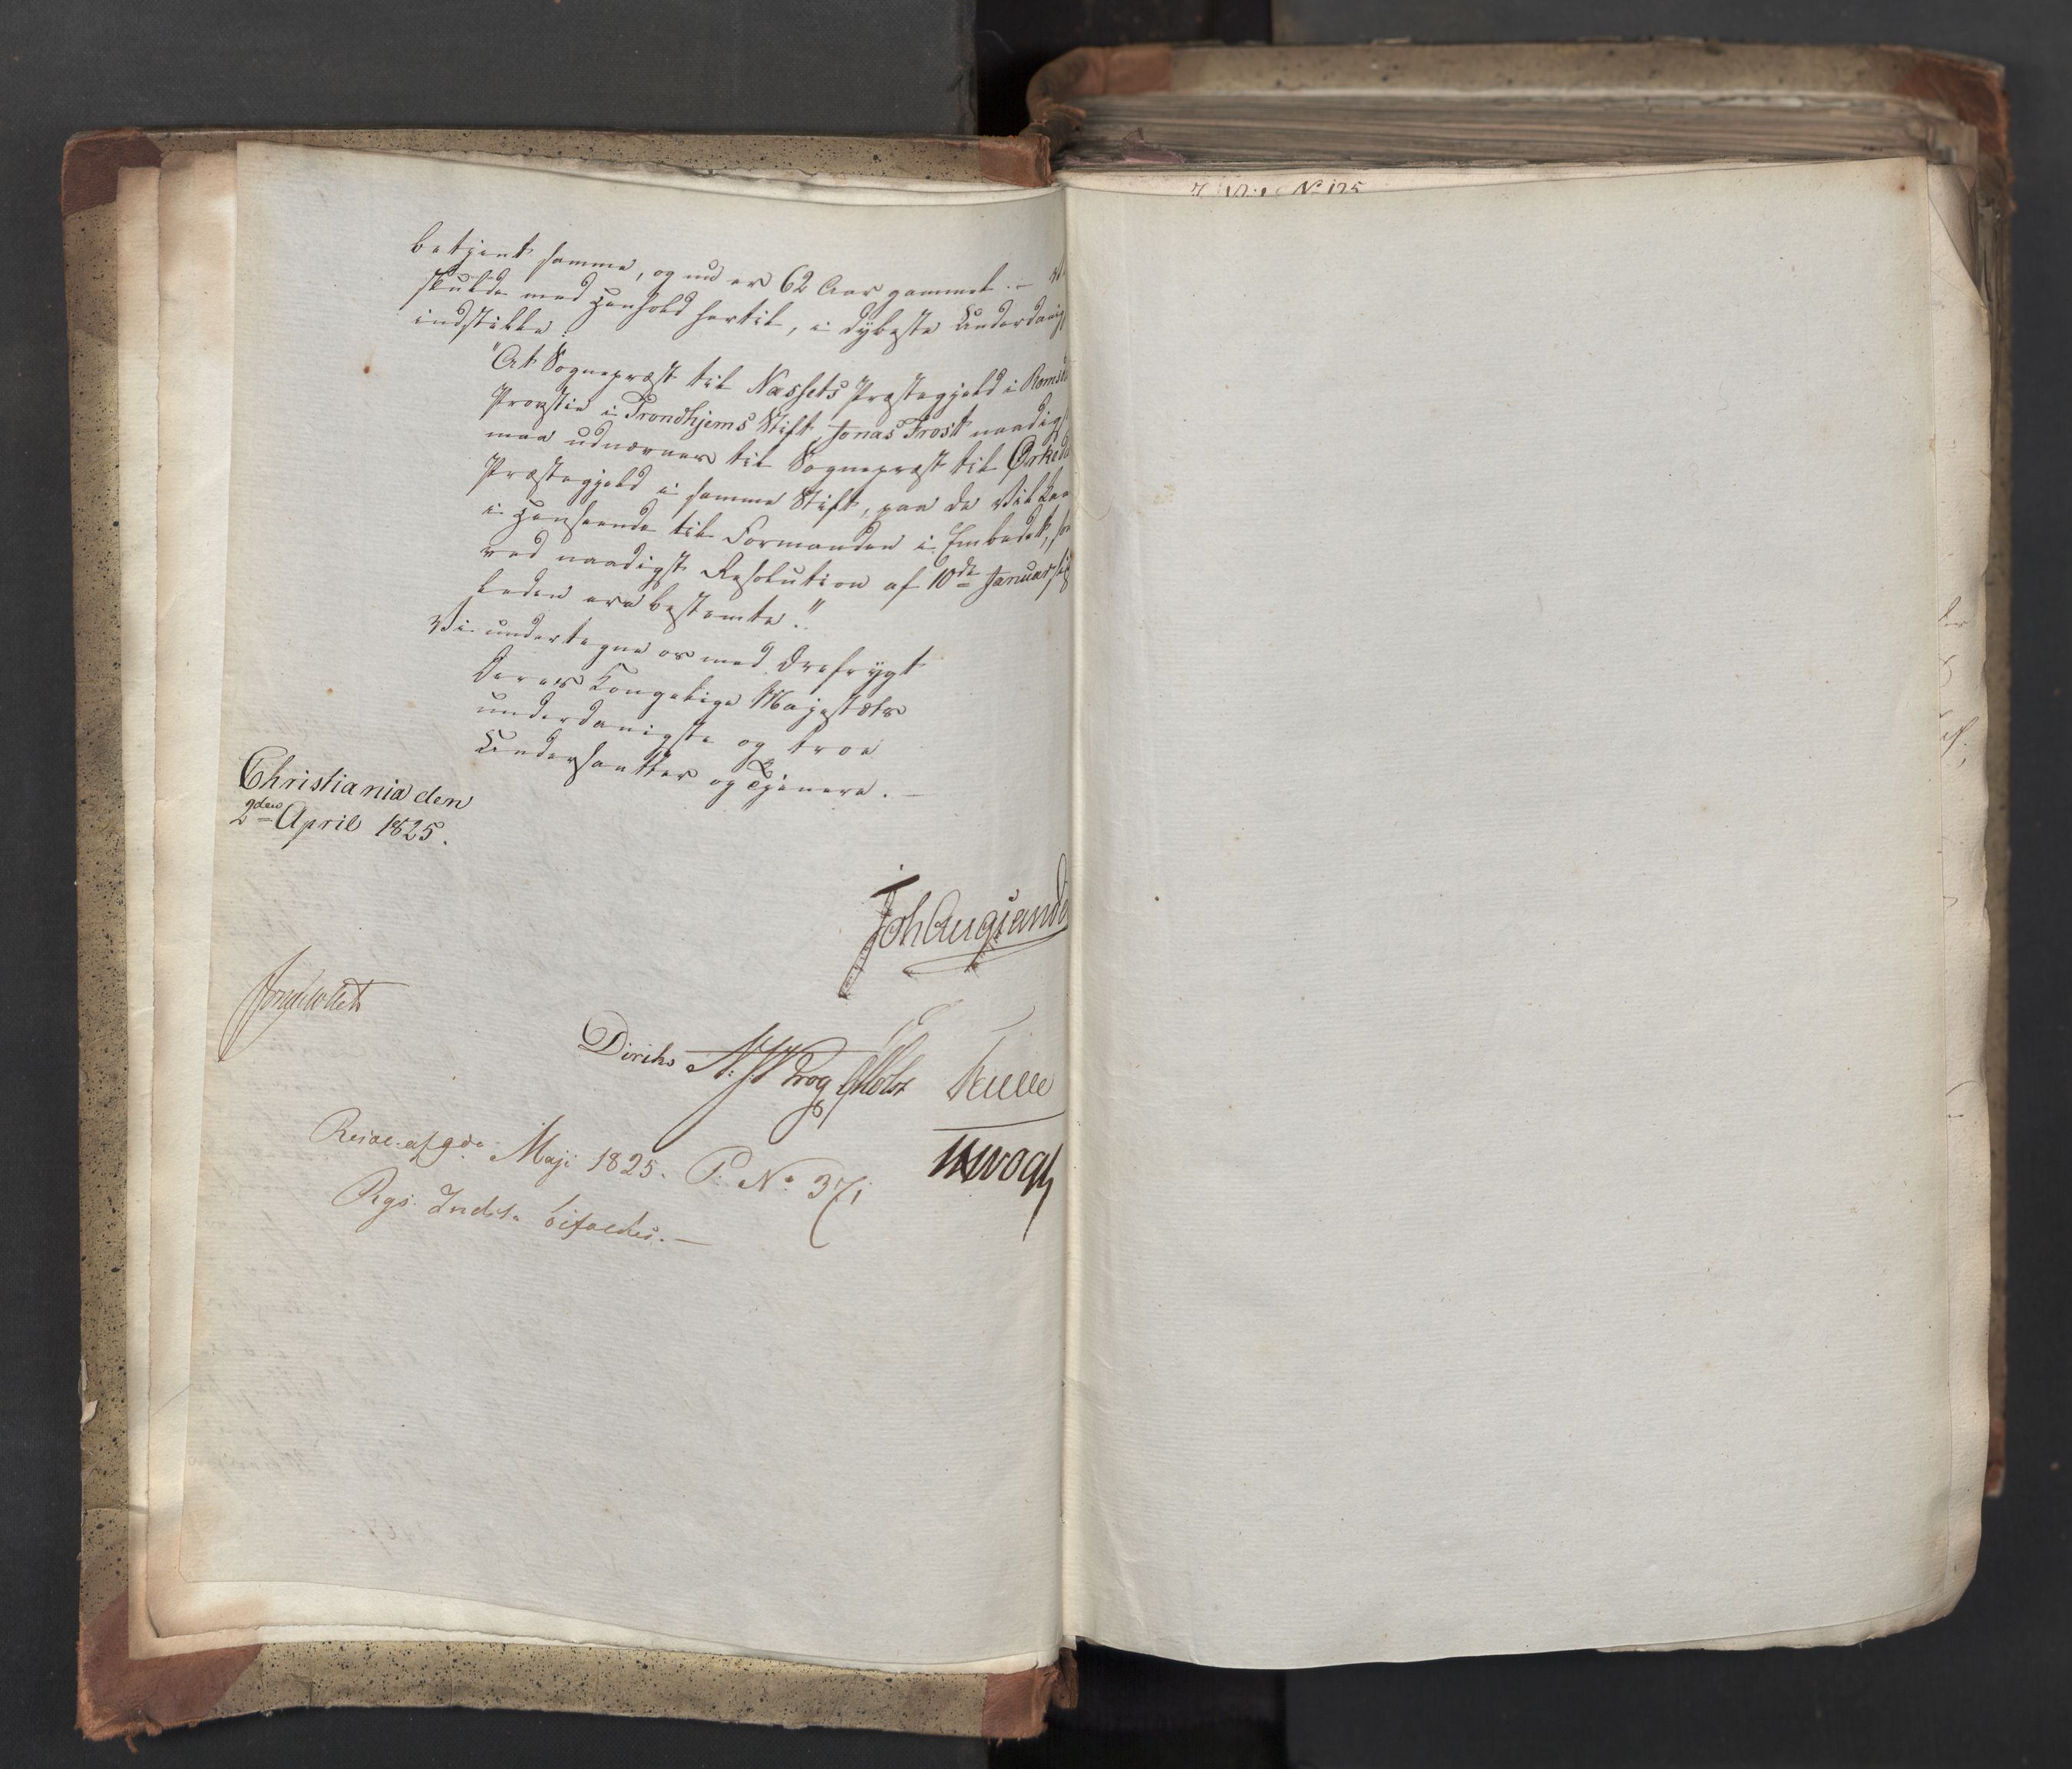 betjent samme, og nu er 62 Aar gammel. –
skulde med Henhold hertil, i dybeste Underdanig
indstille:
"At Sognepræst til Næssets Præstegjeld i Romsd
Provstie i Trondhjems Stift, Jonas Frost naadigst
maa udnævnes til Sognepræst til Ørkeda
Præstegjeld i samme Stift, paa de Vilkaa
i Henseende til Formanden i Embedet, som
ved naadigst Resolution af 10de Januar sidst
leden ere bestemte."
Vi undertegne os med Ærefrygt
Deres Kongelige Majestæts
underdanigste og troe
Undersaatter og Tjenere. –
Christiania den
2den April 1825.
Joh Aug Sande
Jonas Collett
Diriks N: J: Krog Motzfeldt Treschow
Resol. af 9de Maji 1825. P. No. 371
Rgs. Indst. bifaldes. –